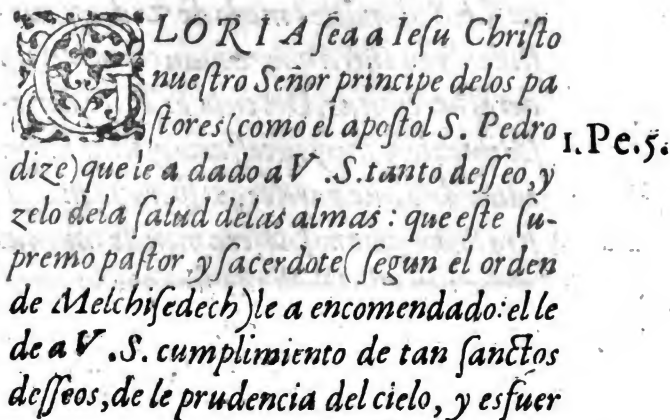 GLORIA sea a Iesu Christo
nuestro Señor principe delos pa
stores (como el apostol S. Pedro
1. Pe. 5.
dize) que le a dado a V. S. tanto desseo, y
zelo dela salud delas almas : que este su-
premo pastor, y sacerdote (segun el orden
de Melchisedech) le a encomendado: el le
de a V. S. cumplimiento de tan sanctos
desseos, de le prudencia del cielo, y esfuer